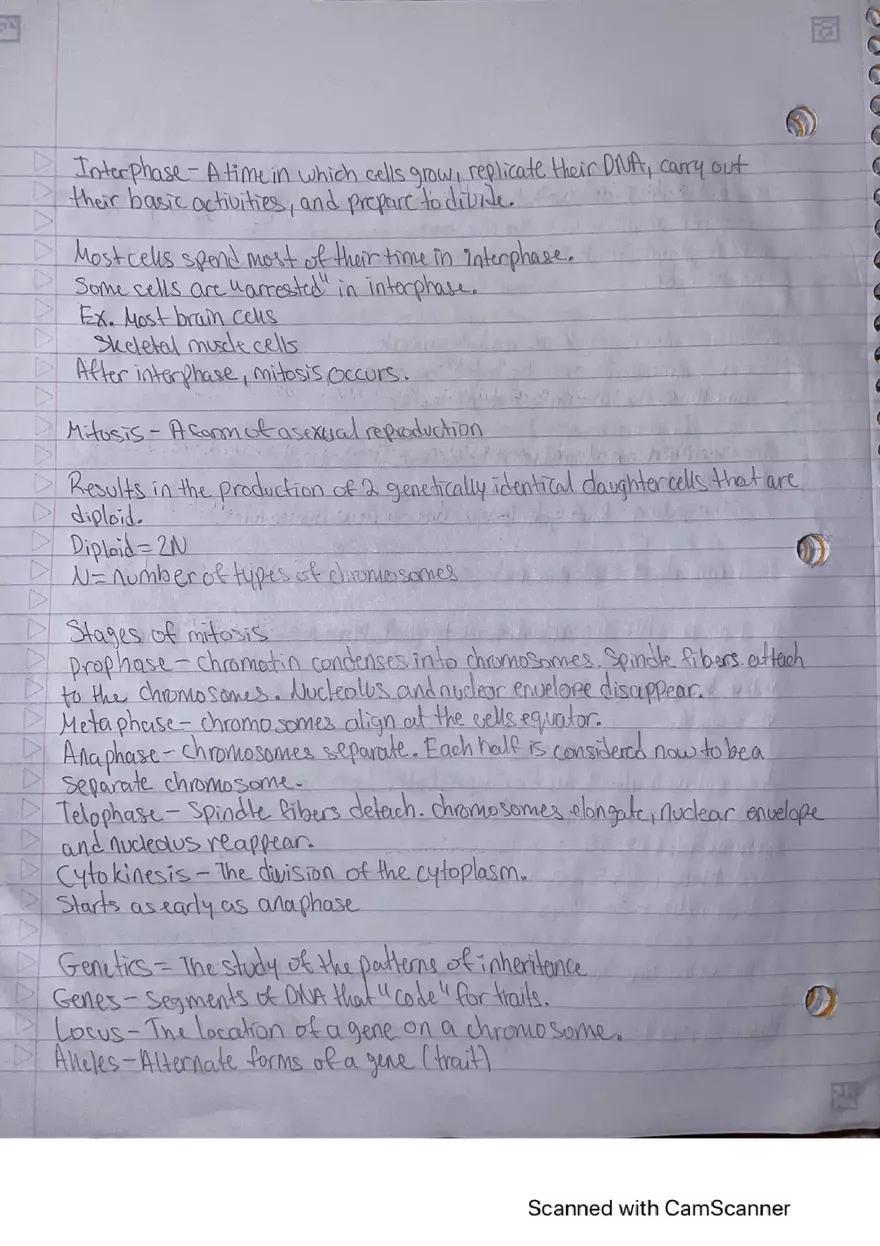 Interphase - A time in which cells grow, replicate their DNA, carry out
their basic activities, and prepare to divide.
Most cells spend most of their time in interphase.
Some cells are "arrested" in interphase.
Ex. Most brain cells
Skeletal muscle cells
After interphase, mitosis occurs.
Mitosis - A form of asexual reproduction
Results in the production of 2 genetically identical daughter cells that are
diploid.
Diploid = 2N
N = number of types of chromosomes
Stages of mitosis
prophase - chromatin condenses into chromosomes. Spindle fibers attach
to the chromosomes. Nucleolus and nuclear envelope disappear.
Metaphase - chromosomes align at the cells equator.
Anaphase - chromosomes separate. Each half is considered now to be a
separate chromosome.
Telophase - Spindle fibers detach. chromosomes elongate, nuclear envelope
and nucleolus reappear.
Cytokinesis - The division of the cytoplasm.
Starts as early as anaphase
Genetics = The study of the patterns of inheritance
Genes - Segments of DNA that "code" for traits.
Locus - The location of a gene on a chromosome.
Alleles - Alternate forms of a gene (trait)
Scanned with CamScanner